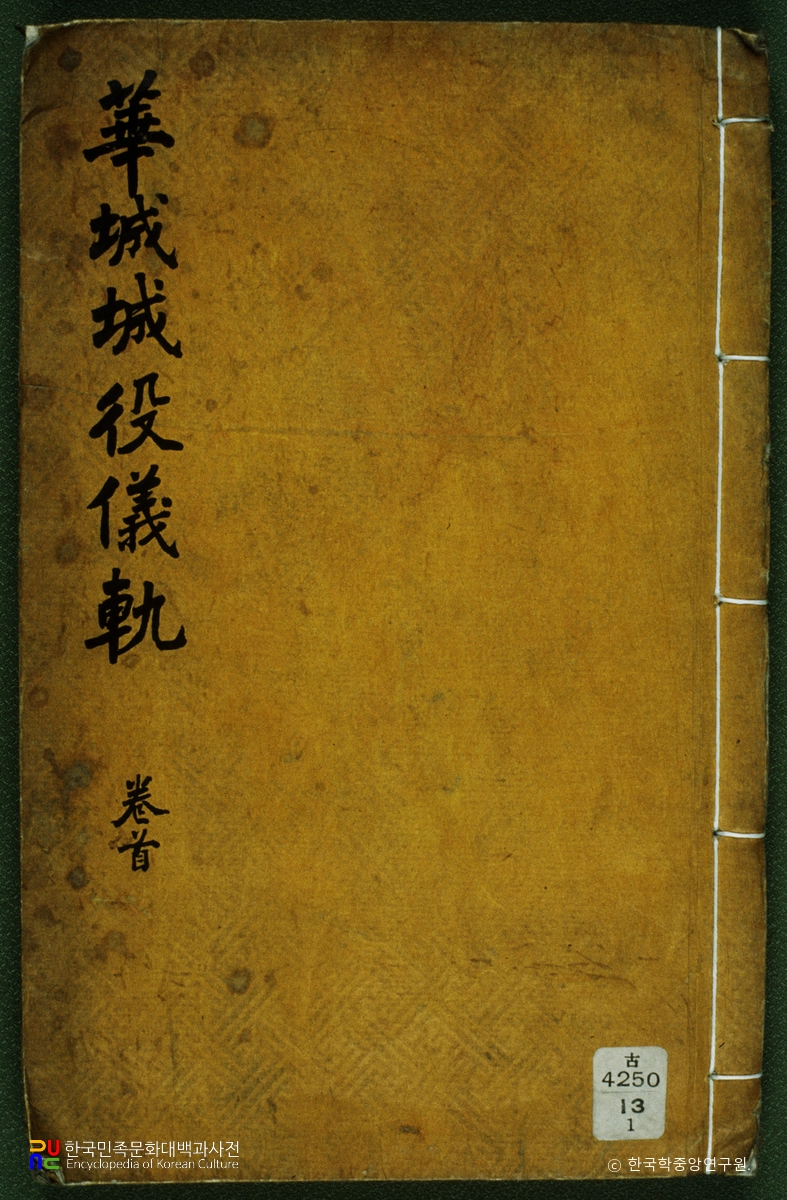 華城城役儀軌
卷首
古
4250
13
1
한국민족문화대백과사전
Encyclopedia of Korean Culture
© 한국학중앙연구원